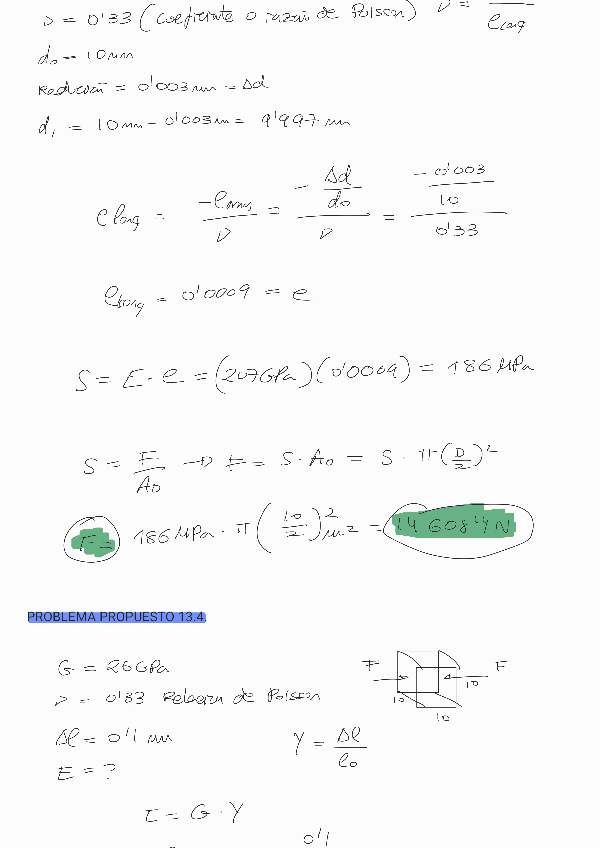 ν = 0'33 (coeficiente o razón de Poisson) ν = ─ / e long
d₀ = 10 mm
Reducción = 0'003 mm = Δd
d₁ = 10 mm - 0'003 m = 9'997 mm
e long = -e trans / ν = - (Δd / d₀) / ν = (-0'003 / 10) / 0'33
e long = 0'0009 = e
S = E · e = (207 GPa)(0'0009) = 186 MPa
S = F / A₀ → F = S · A₀ = S · π (D/2)²
F = 186 MPa · π (10/2)² m² = 14 608'4 N
PROBLEMA PROPUESTO 13.4.
G = 26 GPa
F F
10
10
10
ν = 0'33 Relación de Poisson
Δl = 0'1 mm
γ = Δl / l₀
E = ?
τ = G · γ
0'1